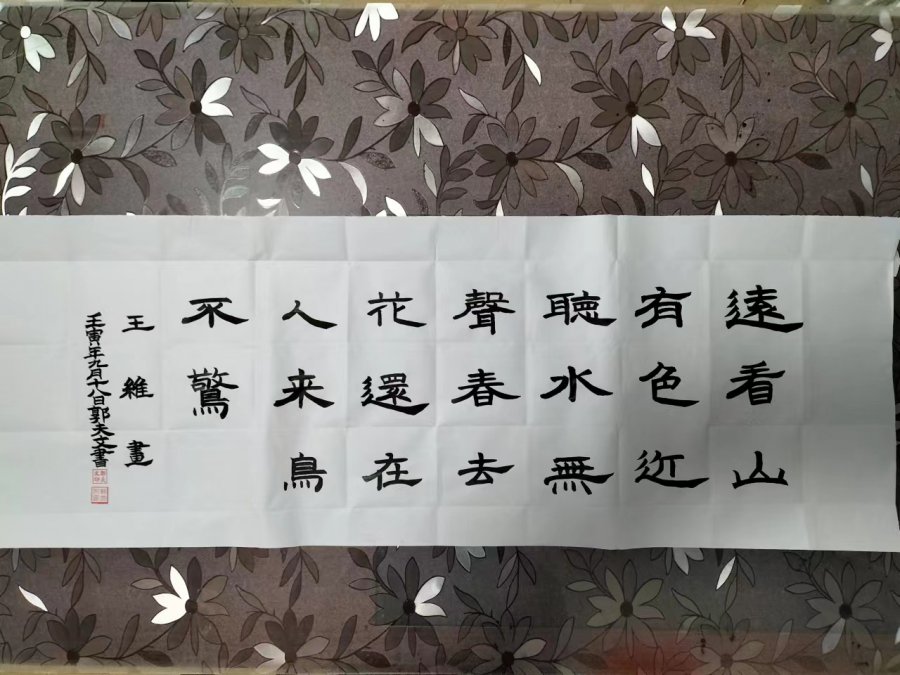 遠看山
有色近
聽水無
聲春去
花還在
人来鳥
不驚
王維畫
壬寅年九月十八日郭夫文書